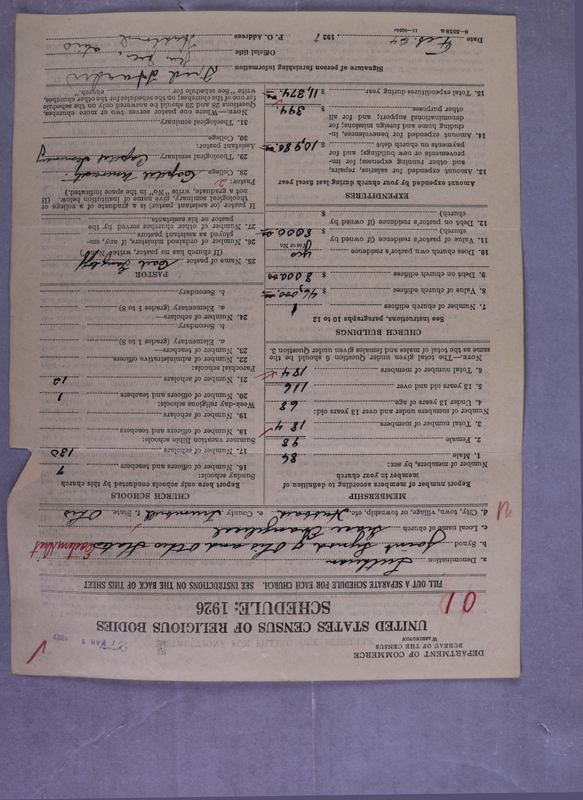 DEPARTMENT OF COMMERCE
BUREAU OF THE CENSUS
WASHINGTON
UNITED STATES CENSUS OF RELIGIOUS BODIES
SCHEDULE: 1926
01
FILL OUT A SEPARATE SCHEDULE FOR EACH CHURCH. SEE INSTRUCTIONS ON THE BACK OF THIS SHEET
a. Denomination Lutheran
b. Synod Joint Synod of Ohio and Other States
c. Local name of church Evangelical
d. City, town, village, or township, etc. Hubbard e. County Trumbull f. State Ohio
MEMBERSHIP
Report number of members according to definition of member in your church
Number of members, by sex:
1. Male 86
2. Female 98
3. Total number of members 184
Number of members under and over 13 years old:
4. Under 13 years of age 68
5. 13 years old and over 116
6. Total number of members 184
NOTE.—The total given under Question 6 should be the same as the total of males and females given under Question 3.
CHURCH BUILDINGS
See instructions, paragraphs 10 to 12
7. Number of church edifices 1
8. Value of church edifices $
9. Debt on church edifices $ 8000.00
10. Does church own pastor's residence yes
(Yes or No)
11. Value of pastor's residence (if owned by church) $ 8000.00
12. Debt on pastor's residence (if owned by church) $
EXPENDITURES
Amount expended by your church during last fiscal year
13. Amount expended for salaries, repairs, and other running expense; for improvements or new buildings; and for payments on church debt $ 10,980.00
14. Amount expended for benevolences, including home and foreign missions; for denominational support; and for all other purposes $ 394.
15. Total expenditures during year $ 11,374.00
CHURCH SCHOOLS
Report here only schools conducted by this church
Sunday schools:
16. Number of officers and teachers 9
17. Number of scholars 130
Summer vacation Bible schools:
18. Number of officers and teachers
19. Number of scholars
Week-day religious schools:
20. Number of officers and teachers 1
21. Number of scholars 12
Parochial schools:
22. Number of administrative officers
23. Number of teachers—
a. Elementary (grades 1 to 8)
b. Secondary
24. Number of scholars—
a. Elementary (grades 1 to 8)
b. Secondary
PASTOR
25. Name of pastor
(If church has no pastor, write "No")
26. Number of ordained ministers, if any, employed as assistant pastors
27. Number of other churches served by the pastor or his assistants
If pastor (or assistant pastor) is a graduate of a college or theological seminary, give name of institution below. (If not a graduate, write "No" in the space indicated.)
Pastor:
28. College Capital University
29. Theological seminary Capital Seminary
Assistant pastor:
30. College
31. Theological seminary
NOTE.—Where one pastor serves two or more churches, Questions 25 and 29 should be answered only on the schedule for one of the churches; on the schedules for the other churches, write "See schedule for church."
Signature of person furnishing information
Official title
Date 192 7 P. O. Address Hubbard Ohio